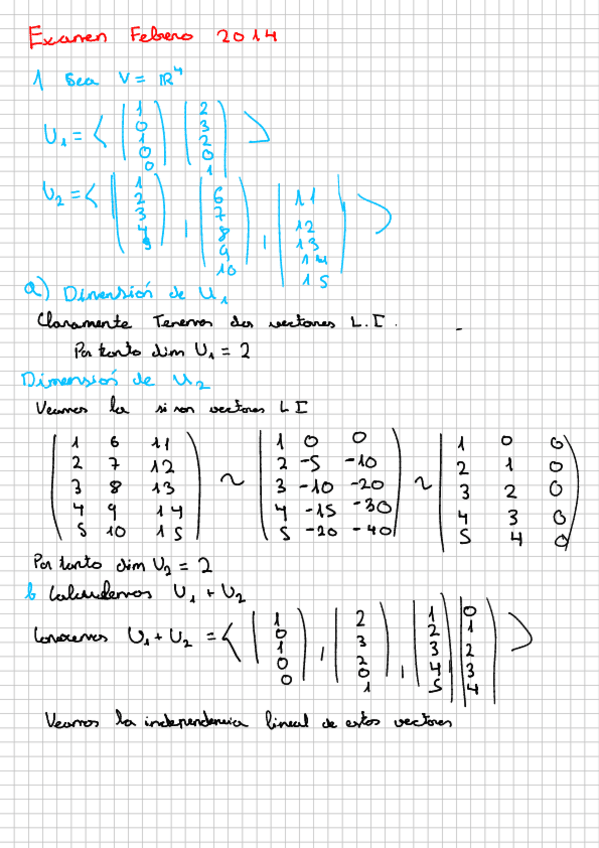 Examen Febrero 2014
1 Sea V = ℝ⁴
U₁ = < (1 0 1 0 0) (2 3 2 0 1) >
U₂ = < (1 2 3 4 5), (6 7 8 9 10), (11 12 13 14 15) >
a) Dimensión de U₁
Claramente Tenemos dos vectores L.I.
Por tanto dim U₁ = 2
Dimensión de U₂
Veamos la si son vectores L I
(1 6 11) ~ (1 0 0) ~ (1 0 0)
(2 7 12) (2 -5 -10) (2 1 0)
(3 8 13) (3 -10 -20) (3 2 0)
(4 9 14) (4 -15 -30) (4 3 0)
(5 10 15) (5 -20 -40) (5 4 0)
Por tanto dim U₂ = 2
b Calculemos U₁ + U₂
Conocemos U₁ + U₂ = < (1 0 1 0 0), (2 3 2 0 1), (1 2 3 4 5) (0 1 2 3 4) >
Veamos la independencia lineal de estos vectores